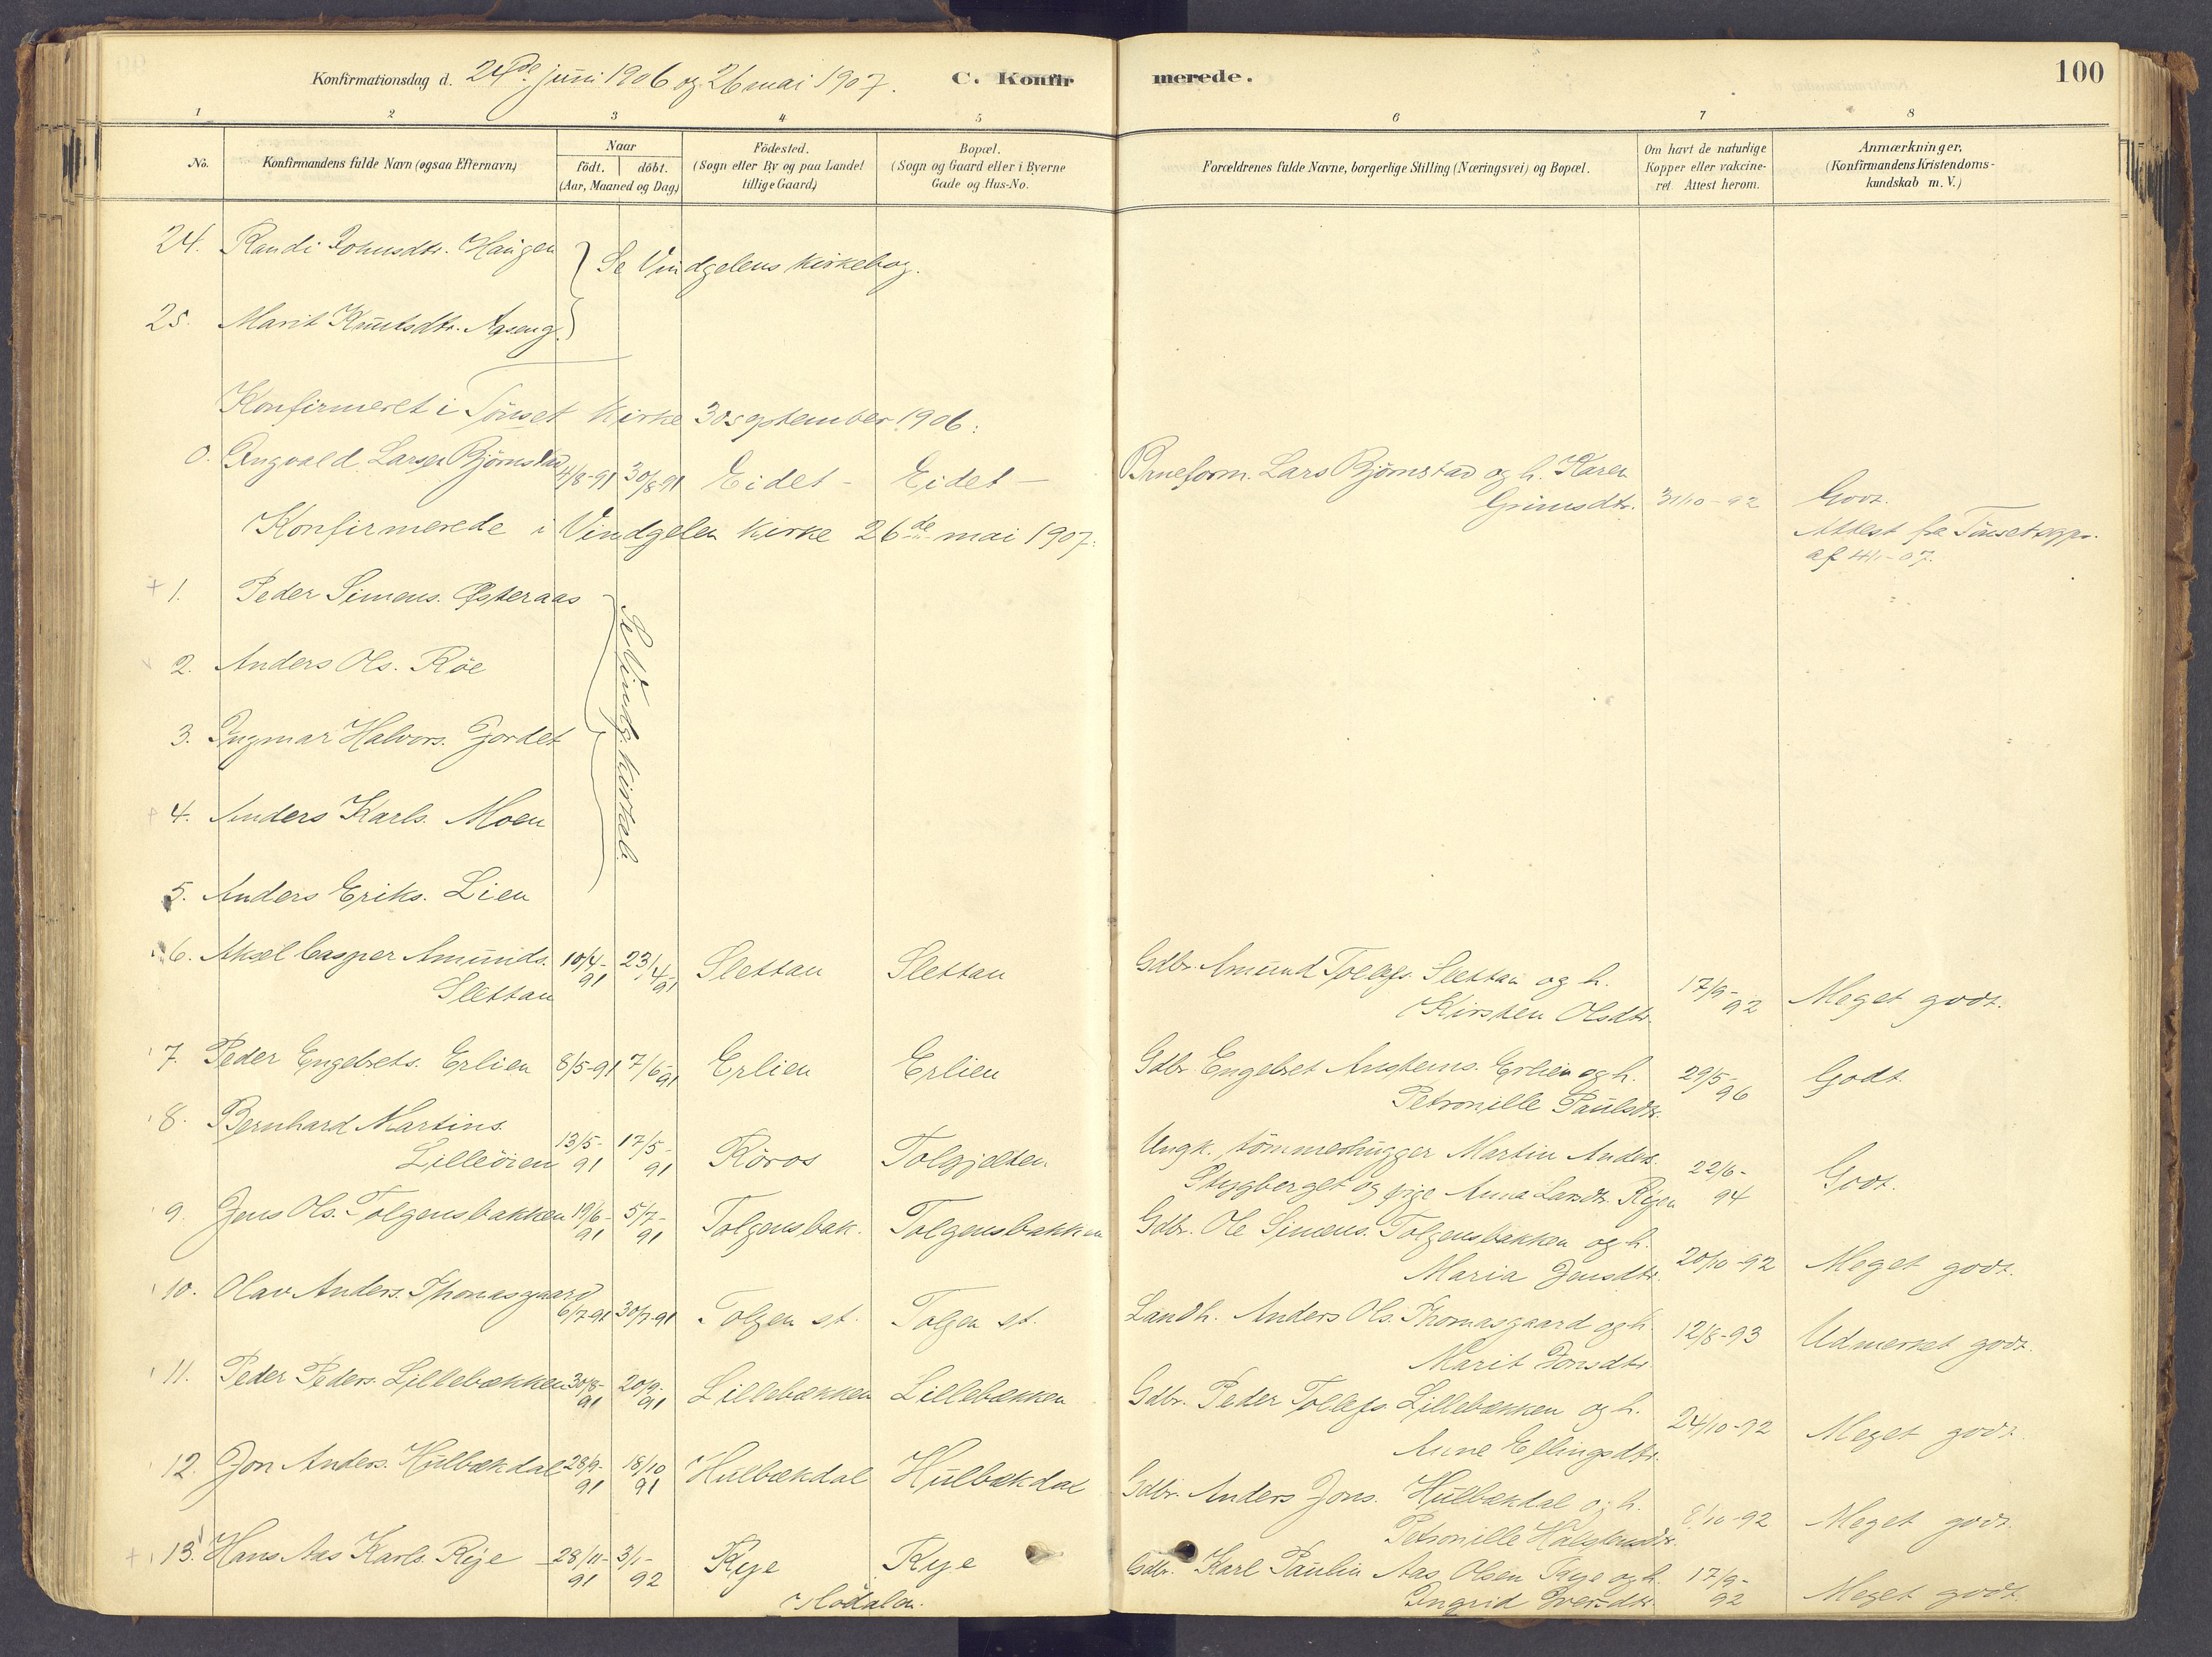 Konfirmationsdag d. 24de juni 1906 og 26 mai 1907. C. Konfirmerede. 100
1 2 3 4 5 6 7 8
No.
Konfirmandens fulde Navn (ogsaa Efternavn)
Naar
födt. döbt.
(Aar, Maaned og Dag)
Födested.
(Sogn eller By og paa Landet
tillige Gaard)
Bopæl.
(Sogn og Gaard eller i Byerne
Gade og Hus-No.
Forældrenes fulde Navne, borgerlige Stilling (Næringsvei) og Bopæl.
Om havt de naturlige
Kopper eller vakcine-
ret. Attest herom.
Anmærkninger.
(Konfirmandens Kristendoms-
kundskab m. V.)
24. Randi Johnsdtr. Haugen
Se Vindgelens kirkebog.
25. Marit Knutsdtr. Aaseng
Konfirmeret i Tönset Kirke 30 september 1906:
0. Ingvald Larsen Björnstad 4/8-91 30/8-91 Eidet - Eidet - Lars Björnstad og h. Karen
Grimsdtr. 31/10-92 Godt.
Attest fra Tönset
Konfirmerede i Vindgelen Kirke 26de mai 1907:
af 4/1-07.
1. Peder Simens. Østeraas
Se Vindg. kirkeb.
2. Anders Ols. Röe
3. Ingmar Halvors. Gjordet
4. Anders Karls. Moen
5. Anders Eriks. Lien
6. Aksel Casper Amunds. 10/4-91 23/4-91 Slettan Slettan Gdbr. Amund Tollefs. Slettan og h.
Slettan Kirsten Olsdtr. 17/9-92 Meget godt.
7. Peder Engebrets. Erlien 8/5-91 7/6-91 Erlien Erlien Gdbr. Engebret Anstens. Erlien og h.
Petronille Paulsdtr. 29/5-96 Godt.
8. Bernhard Martins. Ungk. tömmerhugger Martin Anders.
Lilleöien 13/5-91 17/5-91 Röros Tolgjelten Stygberget og pige Anna Larsdtr. 22/6-94 Godt.
9. Jens Ols. Tolgensbakken 19/6-91 5/7-91 Tolgensbak. Tolgensbakken Gdbr. Ole Simens. Tolgensbakken og h.
Maria Jensdtr. 20/10-92 Meget godt.
10. Olav Anders. Thomasgaard 6/7-91 30/7-91 Tolgen st. Tolgen st. Landh. Anders Ols. Thomasgaard og h.
Marit Jonsdtr. 12/8-93 Udmerket godt.
11. Peder Peders. Lillebækken 30/8-91 20/9-91 Lillebækken Lillebækken Gdbr. Peder Tollefs. Lillebækken og h.
Anne Ellingsdtr. 24/10-92 Meget godt.
12. Jon Anders. Hulbækdal 28/9-91 18/10 91 Hulbækdal Hulbækdal Gdbr. Anders Jons. Hulbækdal og h.
Petronille 8/10-92 Meget godt.
13. Hans Aas Karls. Rye 28/11-91 3/1-92 Rye Rye Gdbr. Karl Paulin Aas Olsen Rye og h.
Hodalen. Ingrid Iversdtr. 17/9-92 Meget godt.